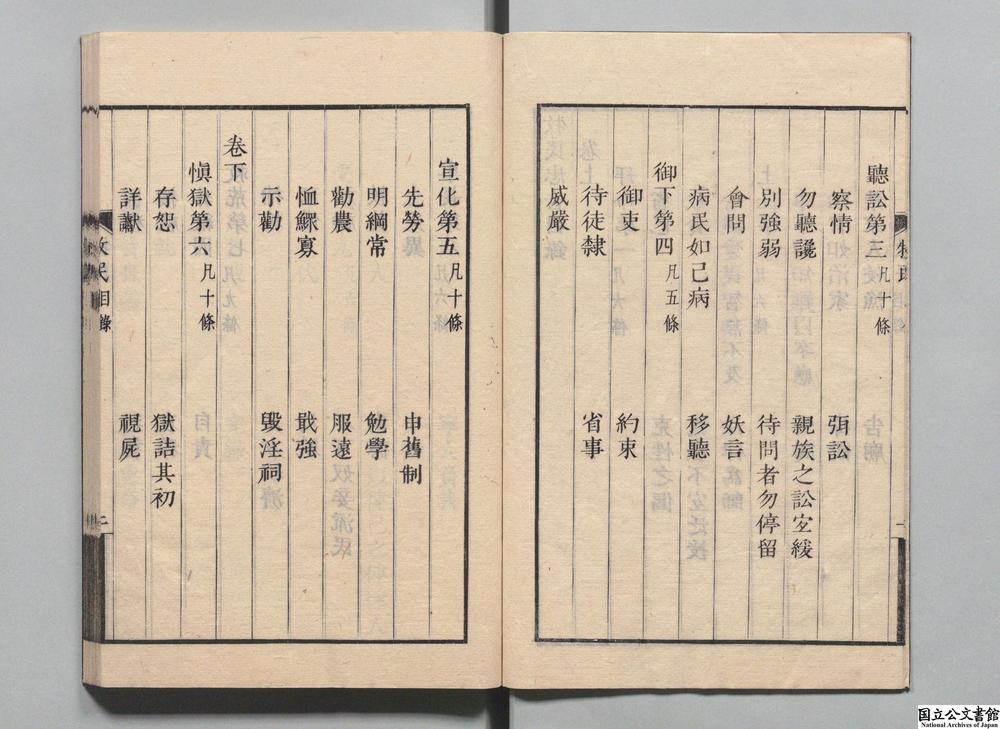 聽訟第三凡十條
察情 弭訟
勿聽讒 親族之訟宜緩
別強弱 待問者勿停留
會問 妖言
病民如己病 移聽
御下第四凡五條
御吏 約束
待徒隸 省事
威嚴
宣化第五凡十條
先勞 申舊制
明綱常 勉學
勸農 服遠
恤鰥寡 戢強
示勸 毀淫祠
卷下
愼獄第六凡十條
存恕 獄詰其初
詳讞 視屍
牧民目錄 二
国立公文書館
National Archives of Japan